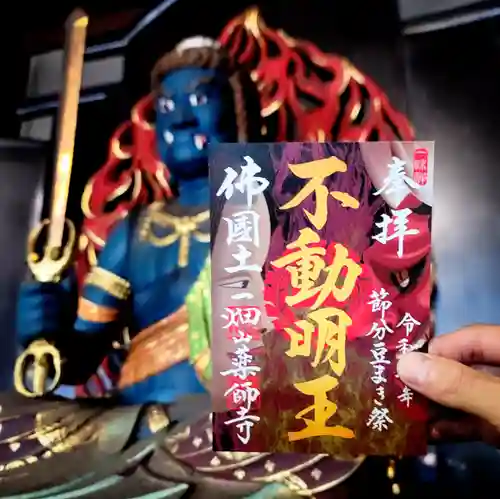 奉拝
令和
年
節分豆まき祭
不動明王
佛國土一畑山薬師寺